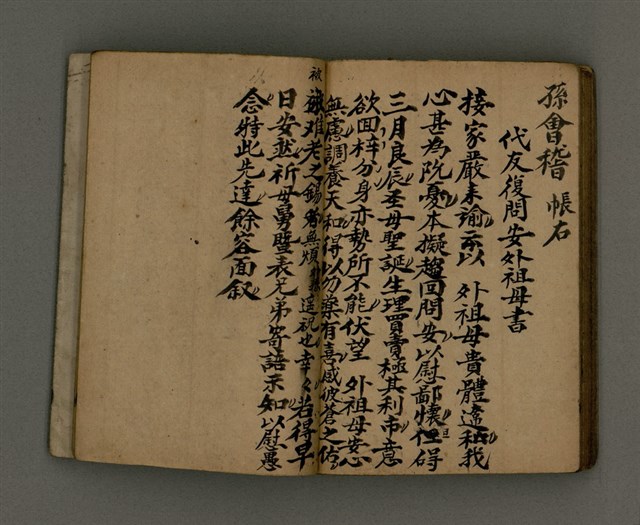 孫會稽 帳石
代友復問安外祖母書
接家嚴来諭示以 外祖母貴體違和我
心甚為阢憂本擬趨回問安以慰鄙懷但碍
三月良辰圣母聖誕生理買賣極其利市意
欲回梓分身亦勢所不能伏望 外祖母安心
無慮調養天和得以勿藥有喜感彼蒼之佑
被难老之錫 無煩 遥祝也幸々若得早
日安然祈母舅暨表兄弟寄語示知以慰愚
念特此先達餘容面叙